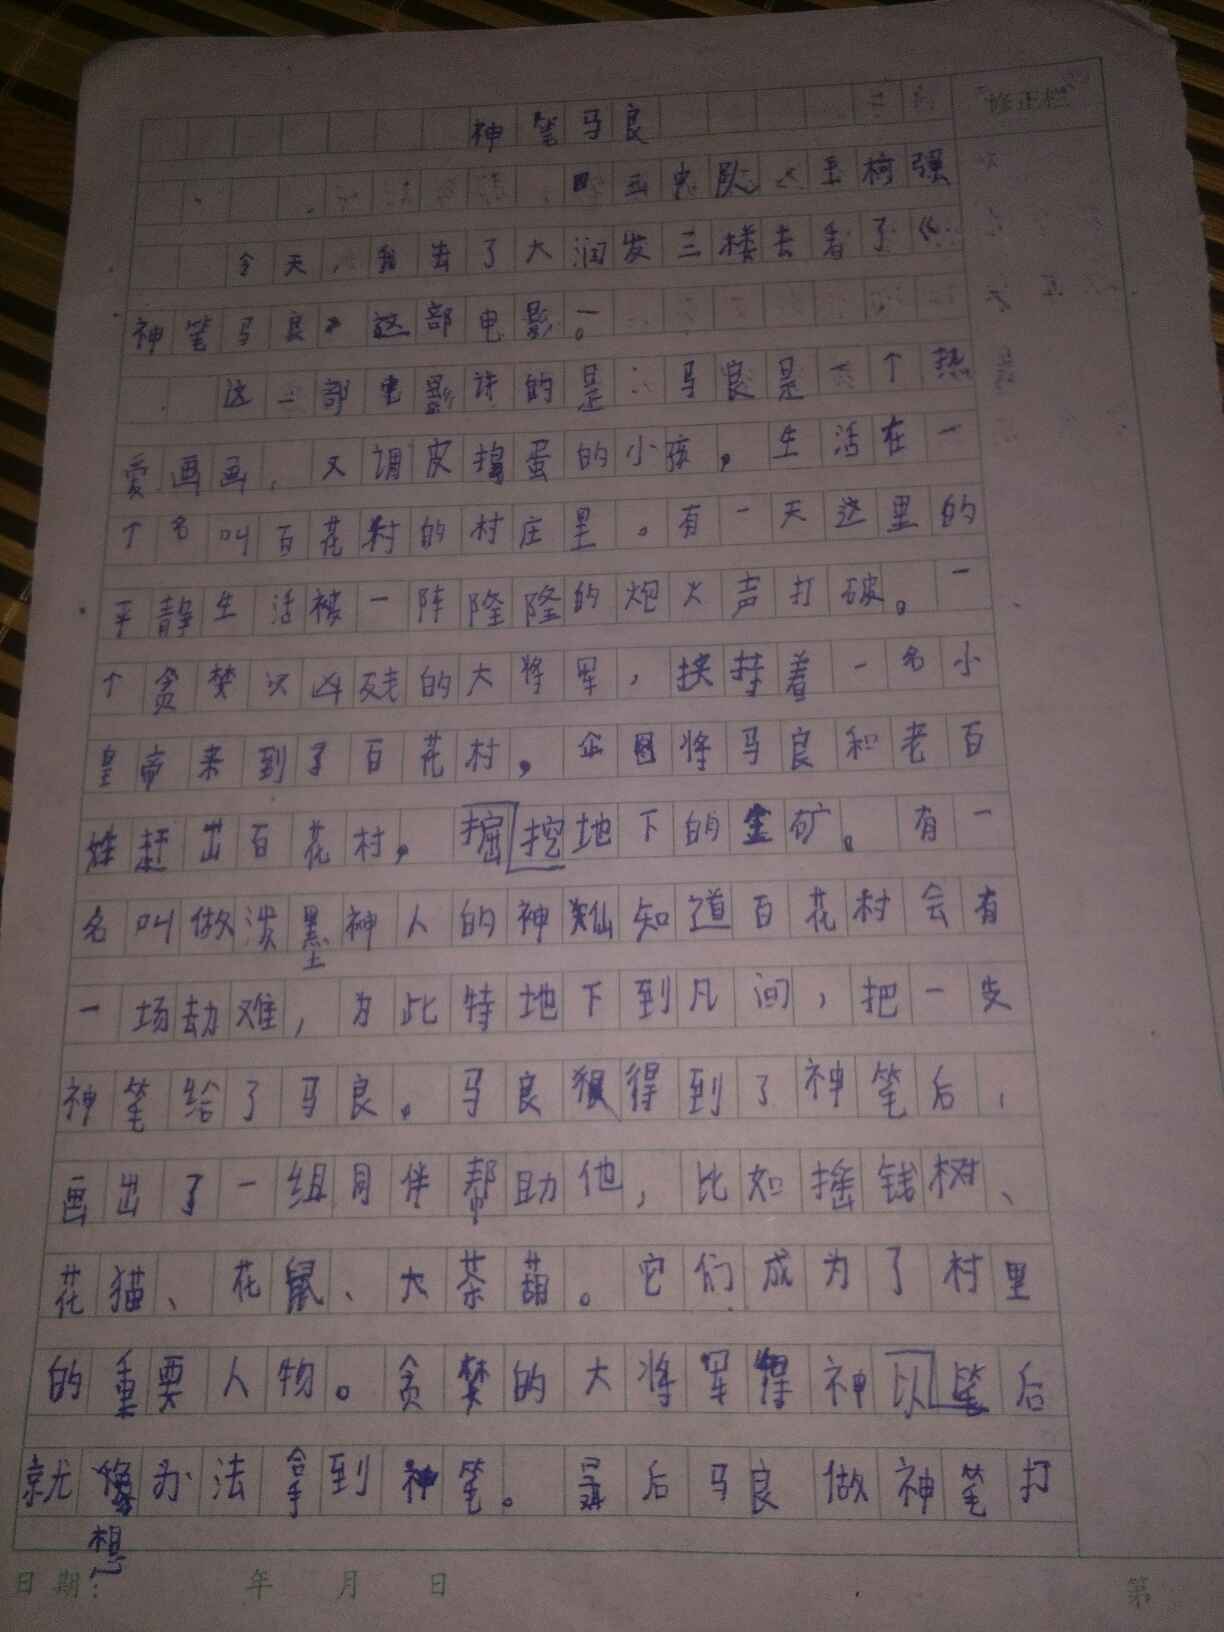 神笔马良
修正栏
四 画 电 队 柯 强
今天，我去了大润发三楼去看了《
神笔马良》这部电影。
这一部电影讲的是：马良是一个热
爱画画，又调皮捣蛋的小孩。生活在一
个名叫百花村的村庄里。有一天这里的
平静生活被一阵隆隆的炮火声打破。一
个贪婪又凶残的大将军，挟持着一名小
皇帝来到了百花村，企图将马良和老百
姓赶出百花村，掘挖地下的金矿。有一
名叫做淡墨神人的神仙知道百花村会有
一场劫难，为此特地下到凡间，把一支
神笔给了马良。马良得到了神笔后，
画出了一组同伴帮助他，比如摇钱树、
花猫、花鼠、大茶葫。它们成为了村里
的重要人物。贪婪的大将军得神以笔后
就想办法拿到神笔。最后马良做神笔打
日期： 年 月 日
第